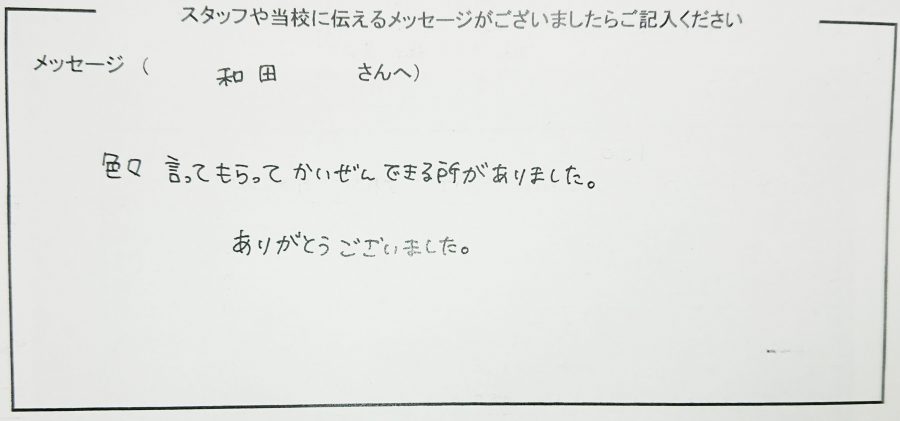 スタッフや当校に伝えるメッセージがございましたらご記入ください
メッセージ（ 和田 さんへ）
色々 言ってもらって かいぜん できる所がありました。
ありがとうございました。